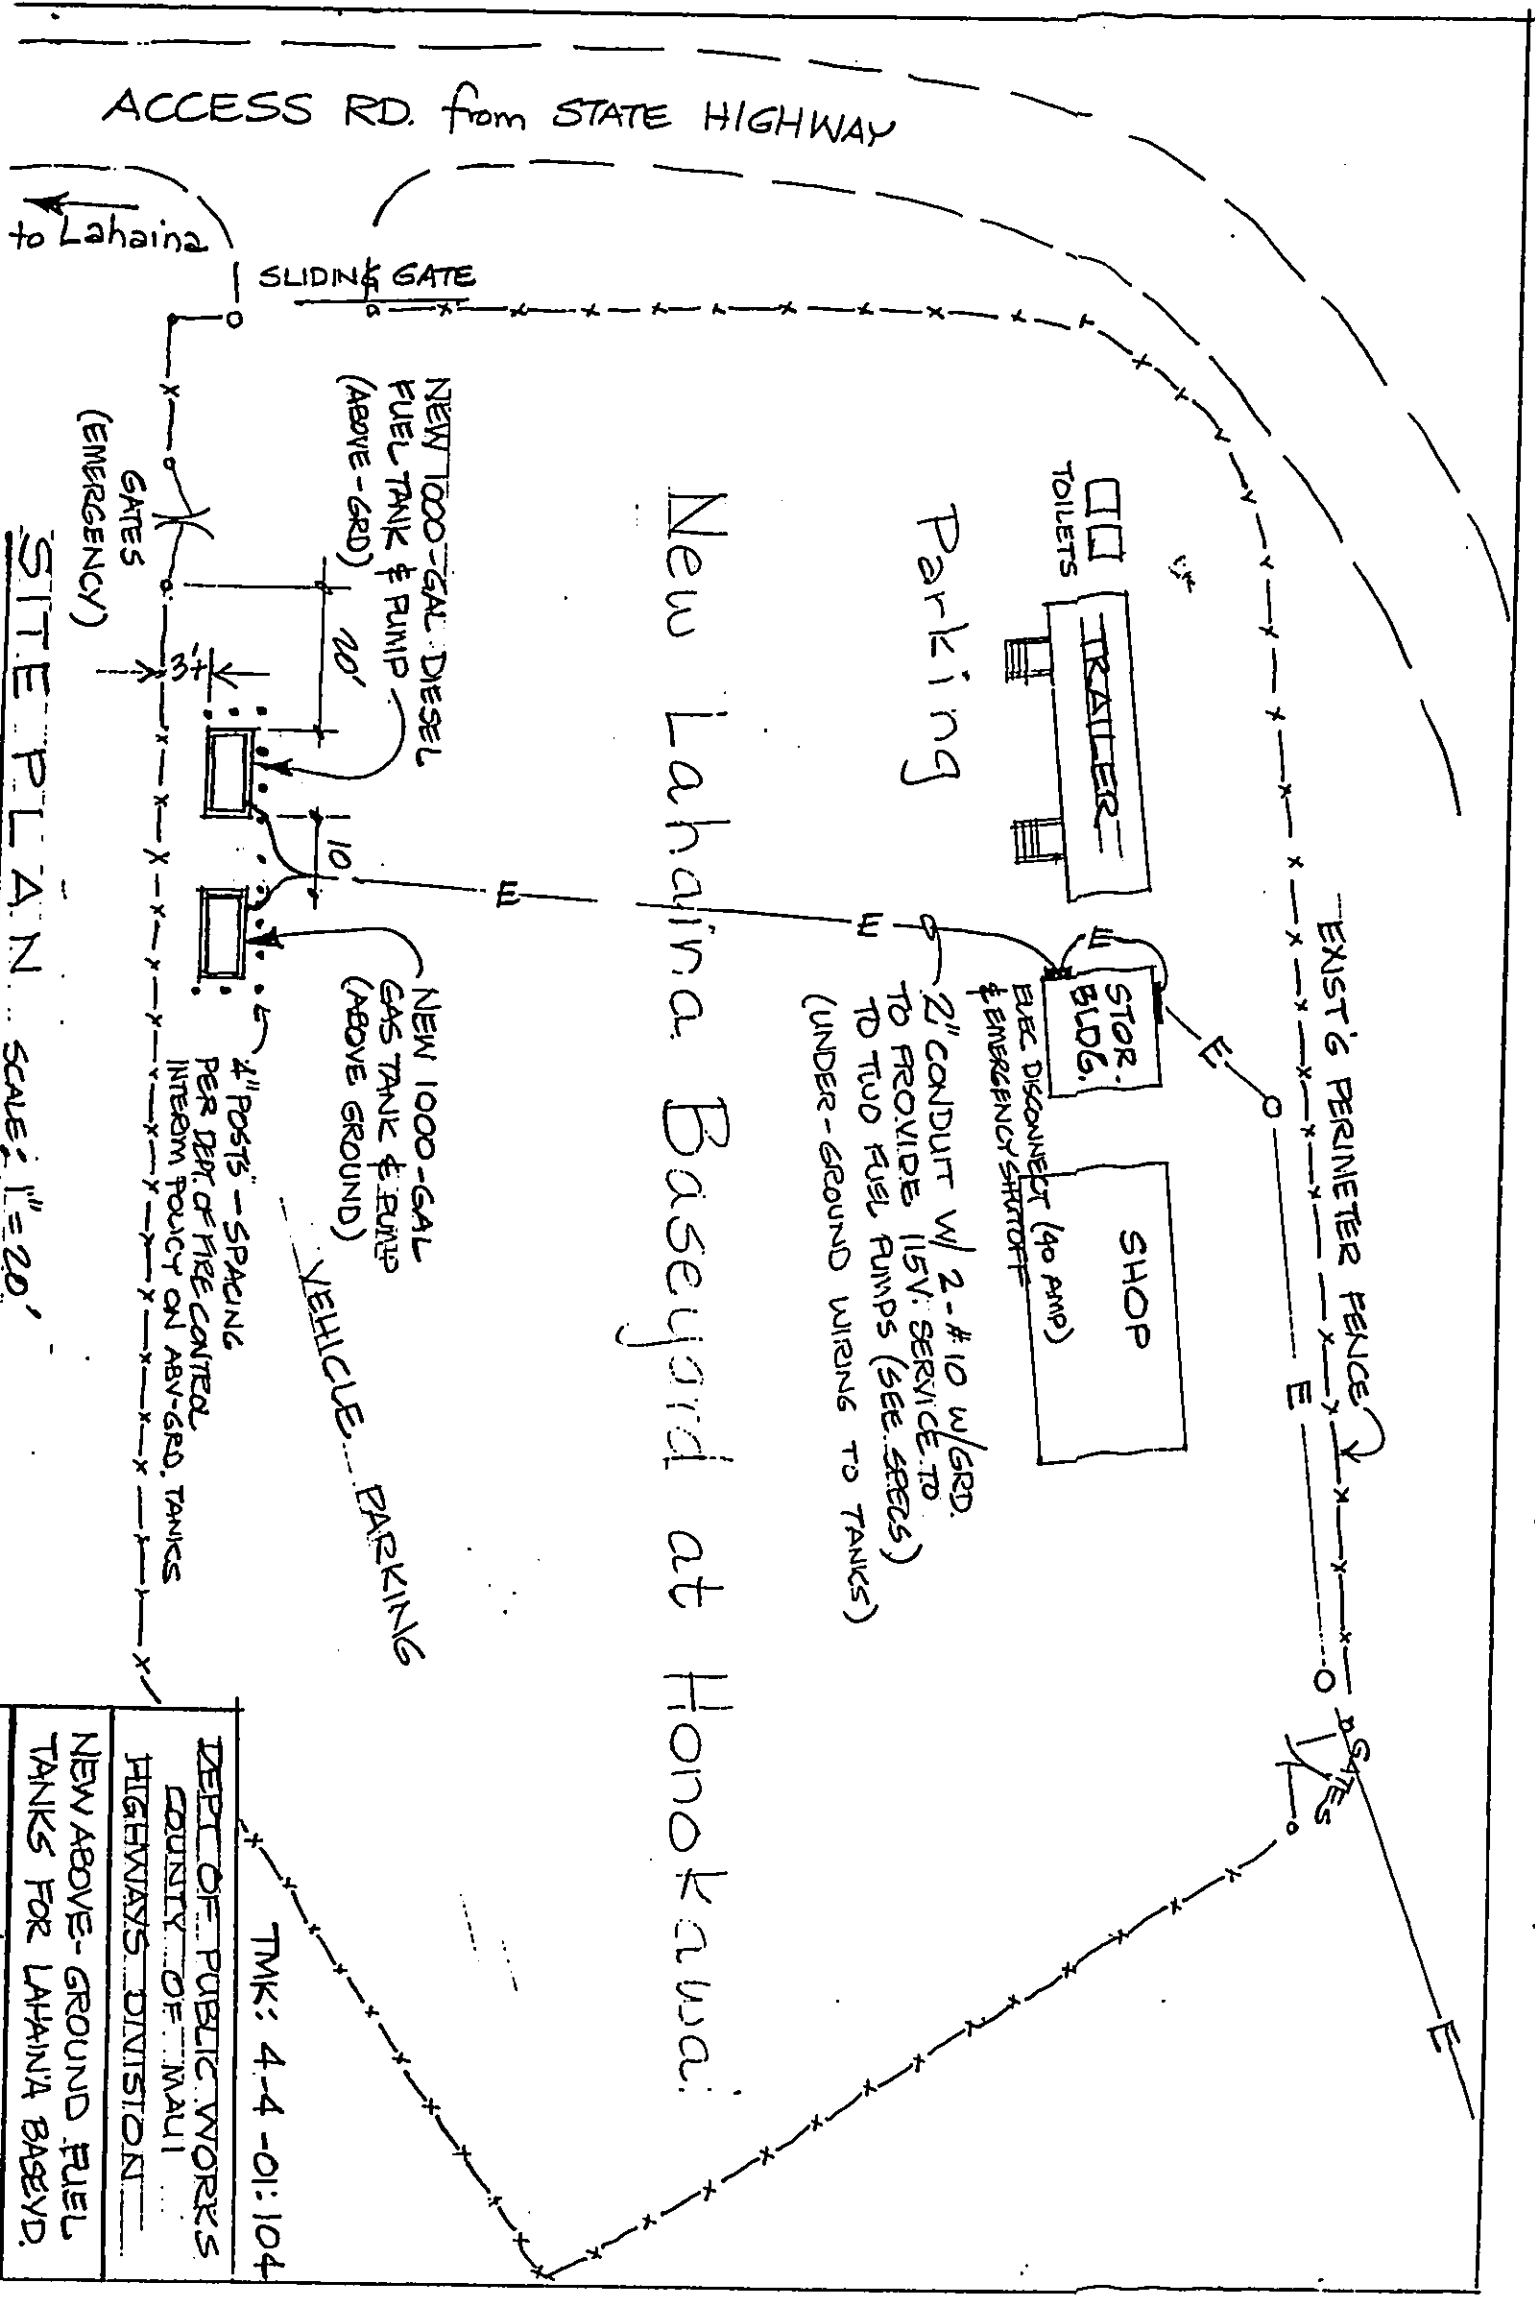 ACCESS RD. from STATE HIGHWAY
to Lahaina
SLIDING GATE
EXIST'G PERIMETER FENCE
GATES
E
E
E
TOILETS
TRAILER
E
STOR.
BLDG.
SHOP
ELEC DISCONNECT (40 AMP)
& EMERGENCY SHUTOFF
Parking
E
2" CONDUIT W/ 2-#10 W/GRD.
TO PROVIDE 115V. SERVICE TO
TO TWO FUEL PUMPS (SEE SPECS)
(UNDER-GROUND WIRING TO TANKS)
New Lahaina Baseyard at Honokawai
E
NEW 1000-GAL DIESEL
FUEL TANK & PUMP
(ABOVE-GRD)
20'
10
3'±
NEW 1000-GAL
GAS TANK & PUMP
(ABOVE GROUND)
VEHICLE PARKING
4" POSTS - SPACING
PER DEPT. OF FIRE CONTROL
INTERIM POLICY ON ABV-GRD. TANKS
GATES
(EMERGENCY)
SITE PLAN SCALE: 1"=20'
TMK: 4-4-01:104
DEPT OF PUBLIC WORKS
COUNTY OF MAUI
HIGHWAYS DIVISION
NEW ABOVE-GROUND FUEL
TANKS FOR LAHAINA BASEYD.